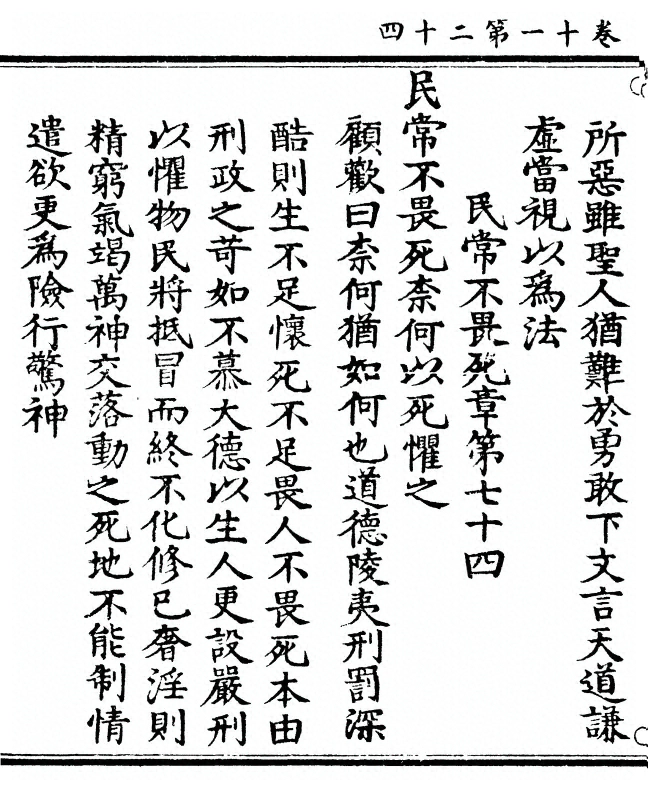 卷十一第二十四
所惡雖聖人猶難於勇敢下文言天道謙
虛當視以爲法
民常不畏死章第七十四
民常不畏死柰何以死懼之
顧歡曰柰何猶如何也道德陵夷刑罰深
酷則生不足懷死不足畏人不畏死本由
刑政之苛如不慕大德以生人更設嚴刑
以懼物民將抵冒而終不化修已奢淫則
精窮氣竭萬神交落動之死地不能制情
遣欲更爲險行驚神